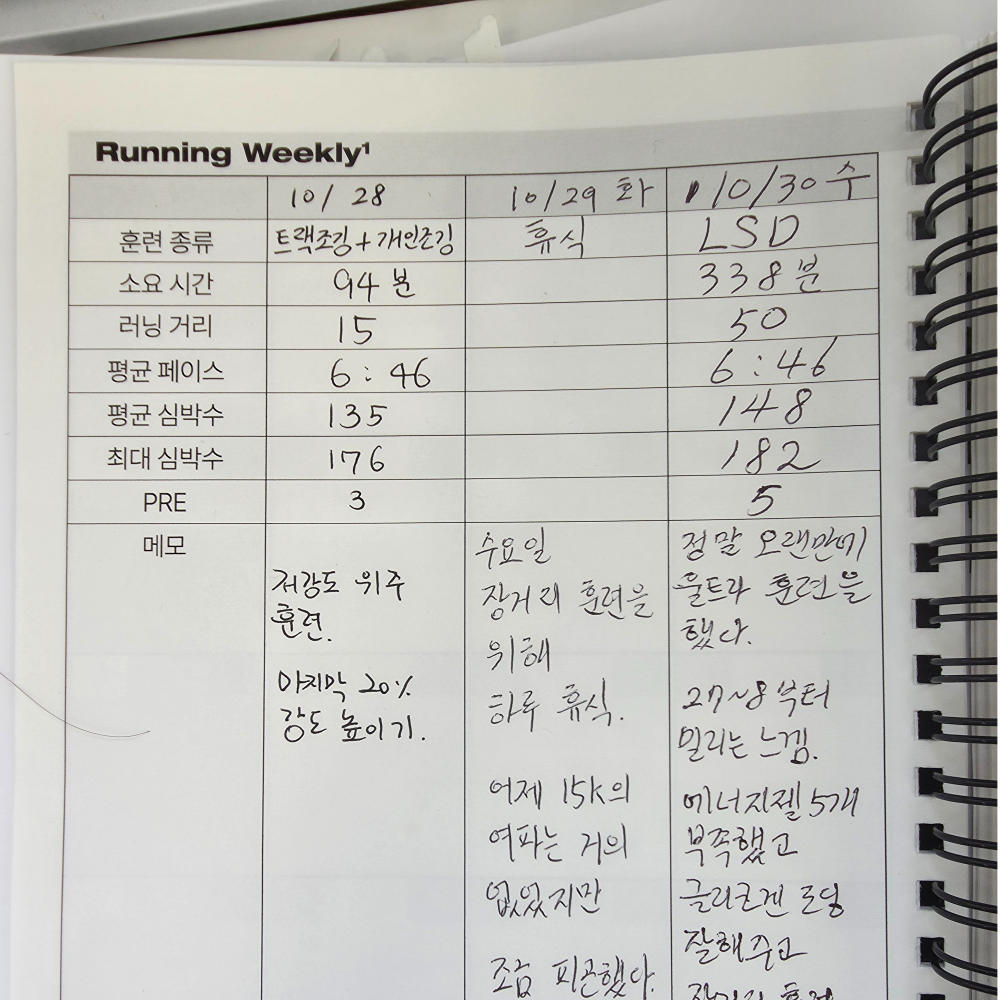 Running Weekly¹
10/28 10/29 화 10/30 수
훈련 종류 트랙조깅+개인조깅 휴식 LSD
소요 시간 94분 338분
러닝 거리 15 50
평균 페이스 6:46 6:46
평균 심박수 135 148
최대 심박수 176 182
PRE 3 5
메모
저강도 위주
훈련.
마지막 20%
강도 높이기.
수요일
장거리 훈련을
위해
하루 휴식.
어제 15K의
여파는 거의
없었지만
조금 피곤했다.
정말 오랜만에
울트라 훈련을
했다.
27~8부터
밀리는 느낌.
에너지젤 5개
부족했고
글리코겐 로딩
잘해주고